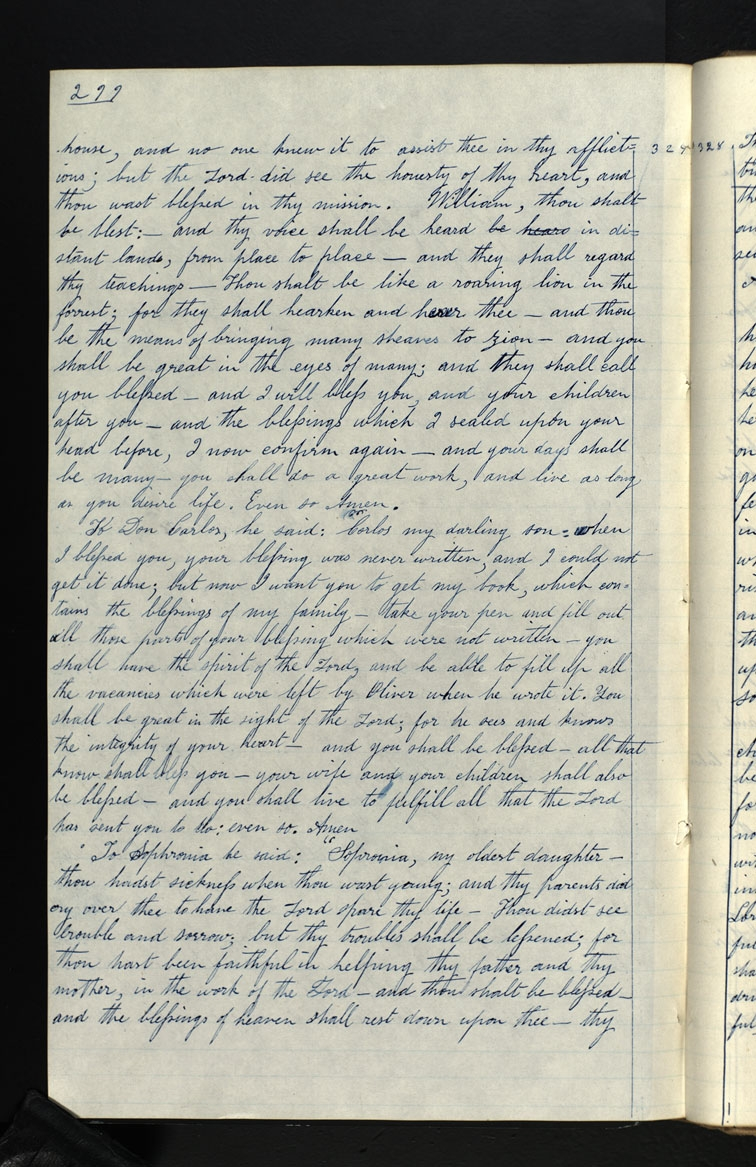 299
house, and no one knew it to assist thee in thy afflict=
ions; but the Lord did see the honesty of thy heart, and
thou wast blessed in thy mission. William, thou shalt
be blest:— and thy voice shall be heard be hears in di=
stant lands, from place to place — and they shall regard
thy teachings — Thou shalt be like a roaring lion in the
forrest; for they shall hearken and hear thee — and thou
be the means of bringing many sheaves to Zion — and you
shall be great in the eyes of many; and they shall call
you blessed — and I will bless you, and your children
after you — and the blessings which I sealed upon your
head before, I now confirm again — and your days shall
be many — you shall do a great work, and live as long
as you desire life. Even so Amen.
To Don Carlos, he said: "Carlos my darling son: when
I blessed you, your blessing was never written, and I could not
get it done; but now I want you to get my book, which con=
tains the blessings of my family — take your pen and fill out
all those parts of your blessing which were not written — you
shall have the spirit of the Lord, and be able to fill up all
the vacancies which were left by Oliver when he wrote it. You
shall be great in the sight of the Lord; for he sees and knows
the integrity of your heart — and you shall be blessed — all that
know shall bless you — your wife and your children shall also
be blessed — and you shall live to fulfill all that the Lord
has sent you to do: even so. Amen
" To Sophronia he said: "Sopronia, my oldest daughter —
thou hadst sickness when thou wast young; and thy parents did
cry over thee to have the Lord spare thy life — Thou didst see
trouble and sorrow; but thy troubles shall be lessened; for
thou hast been faithful in helping thy father and thy
mother, in the work of the Lord — and thou shalt be blessed —
and the blessings of heaven shall rest down upon thee — thy
328